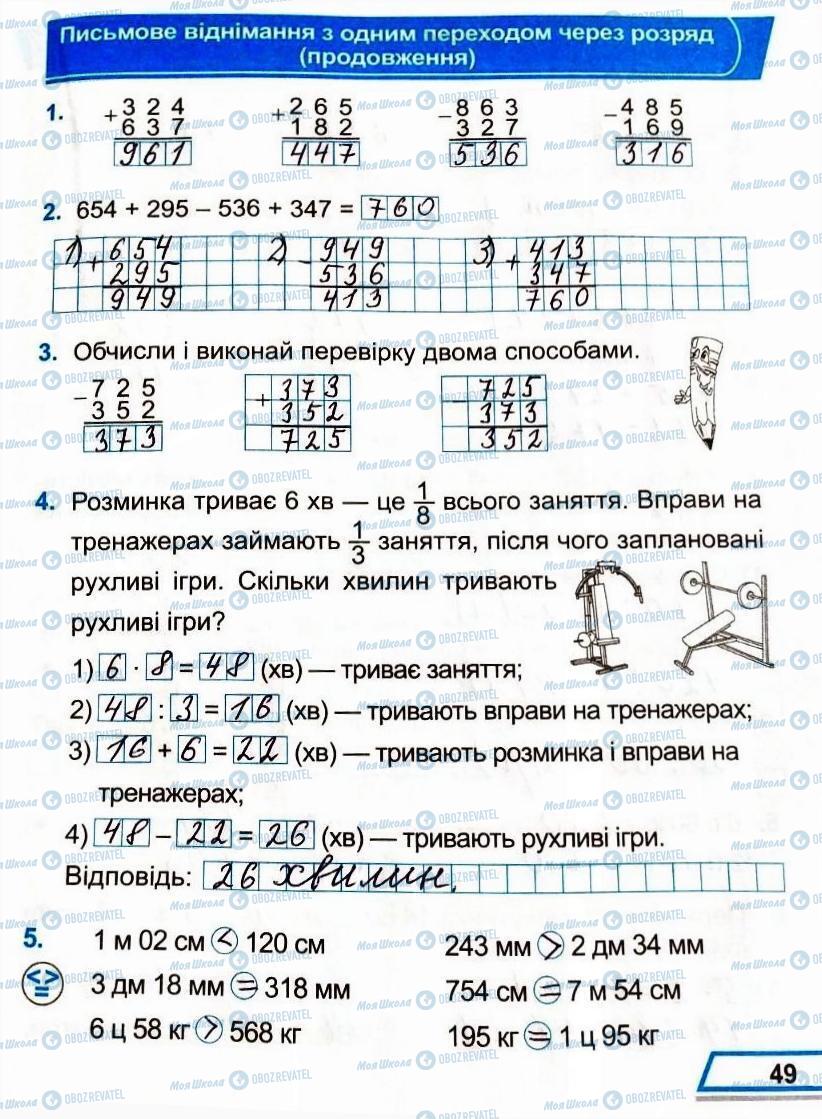 Письмове віднімання з одним переходом через розряд
(продовження)
1. +324 +265 -863 -485
637 182 327 169
961 447 536 316
2. 654 + 295 – 536 + 347 = 760
1) +654 2) -949 3) +413
295 536 347
949 413 760
3. Обчисли і виконай перевірку двома способами.
-725 +373 -725
352 352 373
373 725 352
4. Розминка триває 6 хв — це 1/8 всього заняття. Вправи на
тренажерах займають 1/3 заняття, після чого заплановані
рухливі ігри. Скільки хвилин тривають
рухливі ігри?
1) 6 · 8 = 48 (хв) — триває заняття;
2) 48 : 3 = 16 (хв) — тривають вправи на тренажерах;
3) 16 + 6 = 22 (хв) — тривають розминка і вправи на
тренажерах;
4) 48 – 22 = 26 (хв) — тривають рухливі ігри.
Відповідь: 26 хвилин.
5. 1 м 02 см < 120 см 243 мм > 2 дм 34 мм
<>= 3 дм 18 мм = 318 мм 754 см = 7 м 54 см
6 ц 58 кг > 568 кг 195 кг = 1 ц 95 кг
49
МояШкола OBOZREVATEL